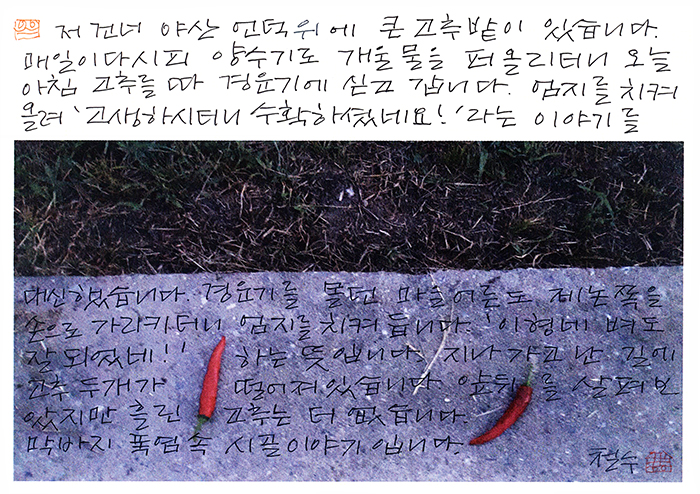 저 건너 야산 언덕위에 큰 고추밭이 있습니다.
매일이다시피 양수기로 개울물을 퍼올리더니 오늘
아침 고추를 따 경윤기에 싣고 갑니다. 엄지를 치켜
올려 '고생하시더니 수확하셨네요!'라는 이야기를
대신했습니다. 경윤기를 몰던 마을어른도 제논쪽을
손으로 가리키더니 엄지를 치켜 듭니다. '이형네 벼도
잘 되였네!' 하는 뜻입니다. 지나 가고 난 길에
고추 두개가 떨어져있습니다. 앞뒤를 살펴 보
았지만 흘린 고추는 더 없습니다.
막바지 폭염속 시골이야기입니다.
철수